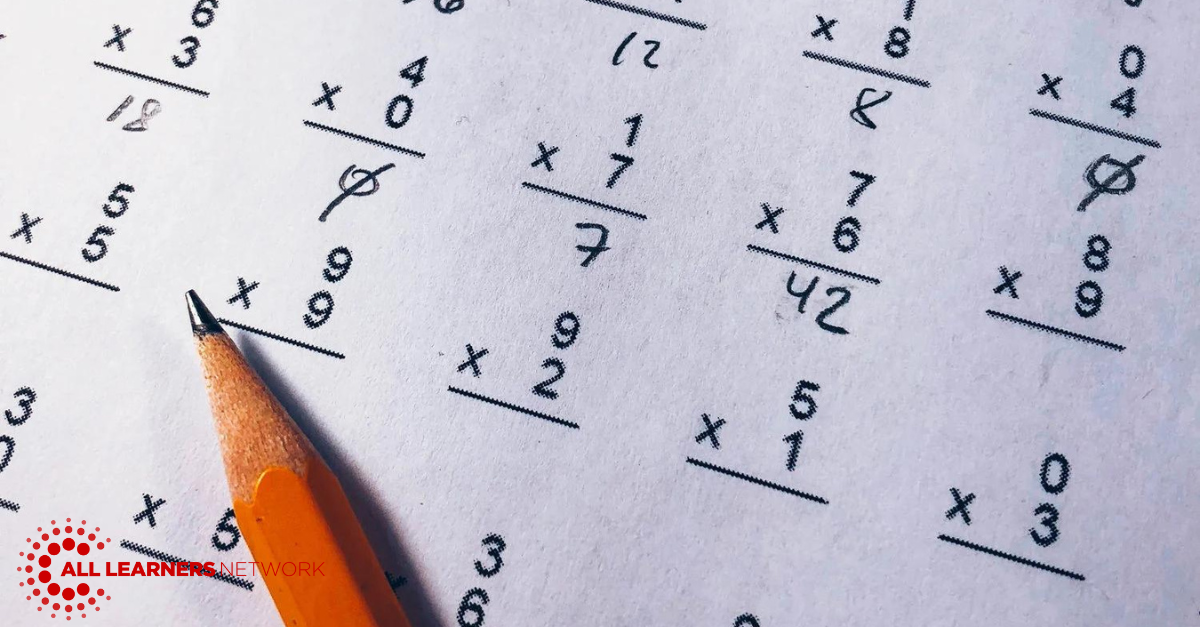 6
x 3
18
4
x 0
0
12
1
x 7
7
x 8
8
7
x 6
42
0
x 4
0
5
x 5
9
x 9
9
x 2
5
x 1
8
x 9
0
x 3
3
x
3
6
ALL LEARNERS NETWORK